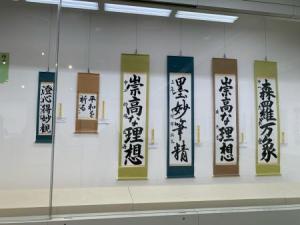 澄心得妙観
平和を
祈る
崇高な理想
墨妙筆精
崇高な理想
森羅万象